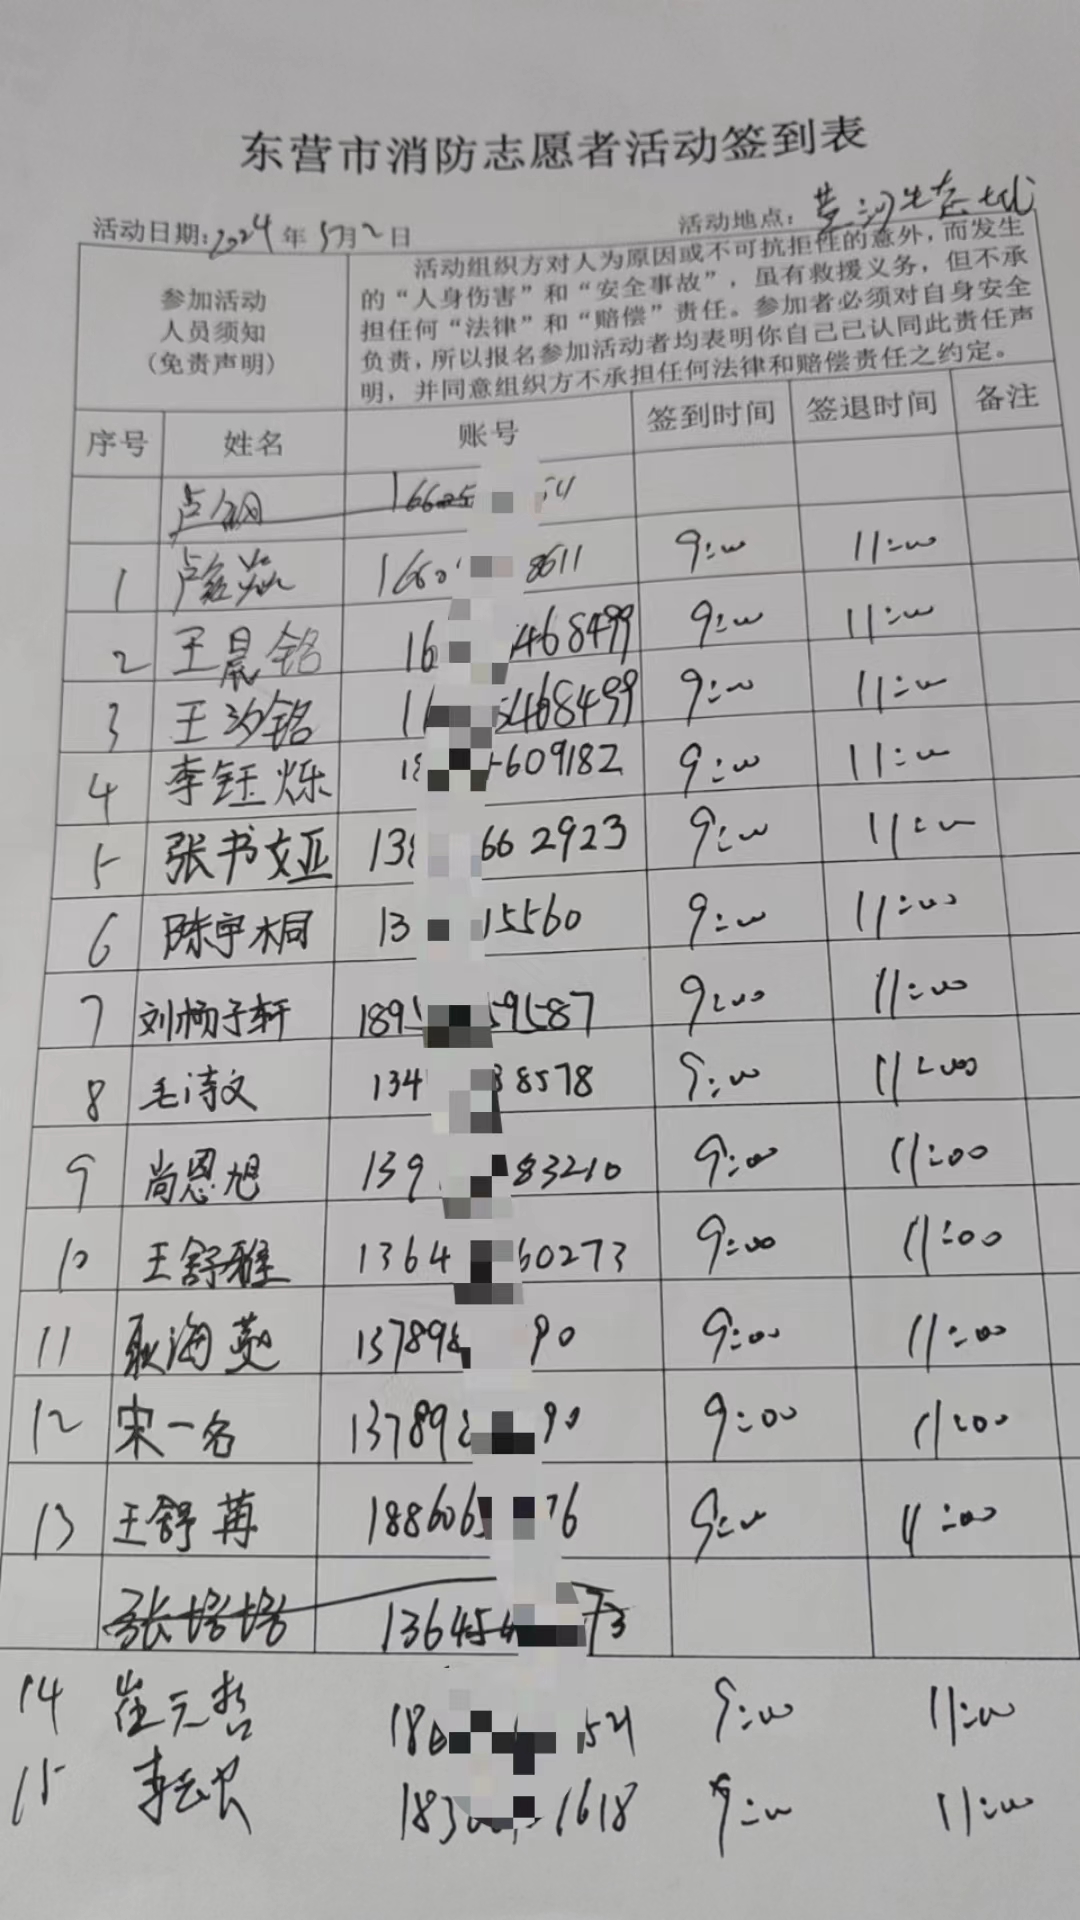 东营市消防志愿者活动签到表
活动日期:2024年5月2日 活动地点:黄河生态城
参加活动
人员须知
(免责声明)
活动组织方对人为原因或不可抗拒性的意外,而发生
的“人身伤害”和“安全事故”,虽有救援义务,但不承
担任何“法律”和“赔偿”责任。参加者必须对自身安全
负责,所以报名参加活动者均表明你自己已认同此责任声
明,并同意组织方不承担任何法律和赔偿责任之约定。
序号 姓名 账号 签到时间 签退时间 备注
卢 16605 54
1 卢 1660 8611 9:00 11:00
2 王晨铭 16 468499 9:00 11:00
3 王汐铭 16 5468499 9:00 11:00
4 李钰烁 18 609182 9:00 11:00
5 张书文亚 138 662923 9:00 11:00
6 陈宇桐 13 15560 9:00 11:00
7 刘杨子轩 1895 59587 9:00 11:00
8 毛诗文 134 38578 9:00 11:00
9 尚恩旭 139 83210 9:00 11:00
10 王舒雅 1364 60273 9:00 11:00
11 耿海英 137898 90 9:00 11:00
12 宋一名 13789 90 9:00 11:00
13 王舒苒 188606 76 9:00 11:00
张塔塔 13645 73
14 崔元哲 186 521 9:00 11:00
15 李 183 1618 9:00 11:00